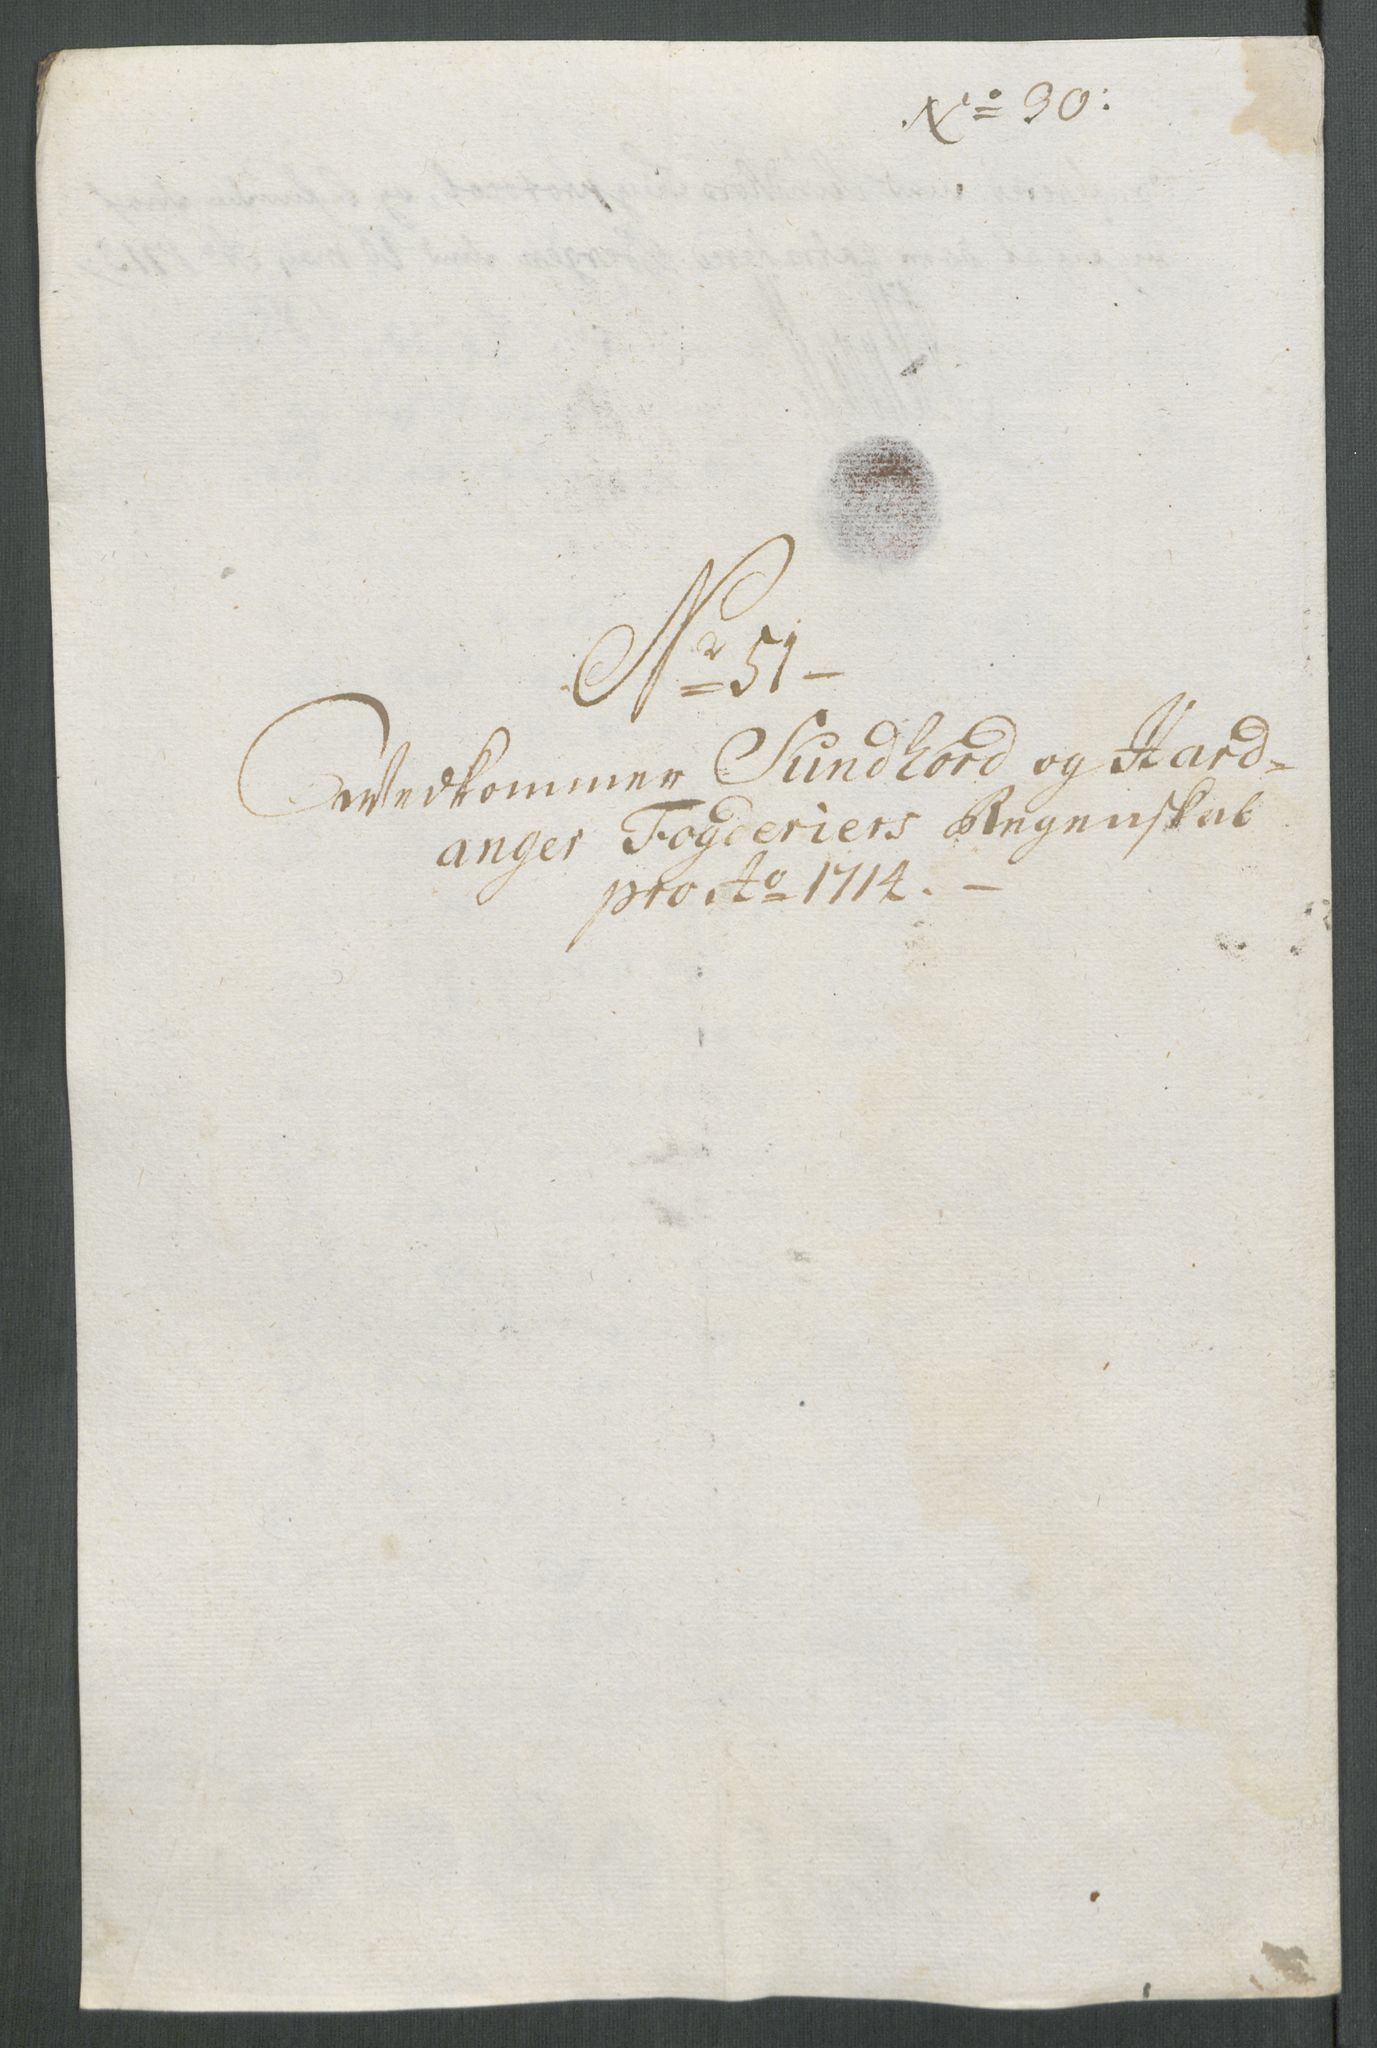 No 30:
Nr 51 -
Vedkommer Sundhord og Hard-
anger Fogderiers Regenskab
pro Ao 1714. -